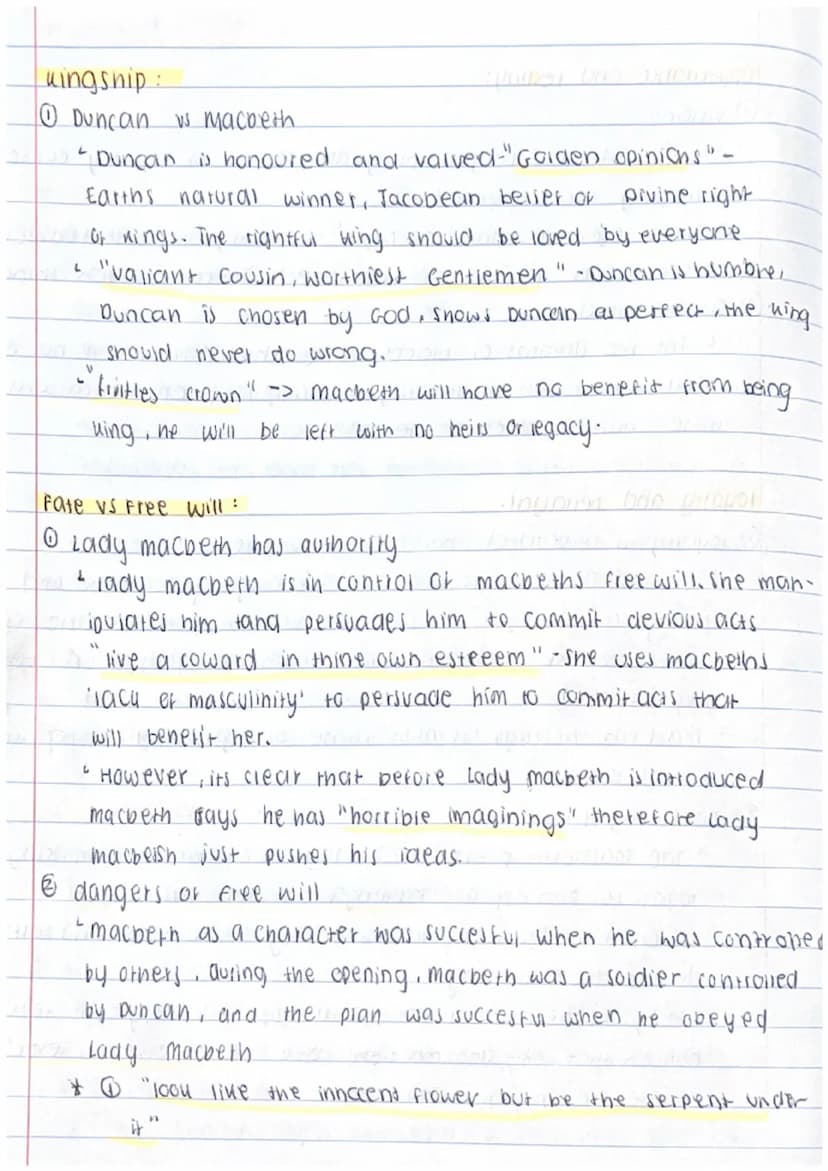 kingship:
① Duncan vs Macbeth
↳ Duncan is honoured and valued - "Golden opinions" -
Earths natural winner, Jacobean belief of Divine right
of kings. The rightful king should be loved by everyone
↳ "valiant Cousin, worthiest Gentlemen" - Duncan is humble,
Duncan is chosen by God, shows Duncan as perfect, the king
should never do wrong.
↳ "fruitles crown" -> macbeth will have no benefit from being
king, he will be left with no heirs or legacy.
Fate vs Free will:
① Lady macbeth has authority
↳ lady macbeth is in control of macbeths free will. She man-
ipulates him and persuades him to commit devious acts
"live a coward in thine own esteeem" - she uses macbeths
'lack of masculinity' to persuade him to commit acts that
will benefit her.
↳ However, its clear that before Lady macbeth is introduced
macbeth says he has "horrible imaginings" therefore Lady
macbeth just pushes his ideas.
② dangers of Free will
↳ macbeth as a character was succesful when he was controlled
by others. during the opening, macbeth was a soldier controlled
by Duncan, and the plan was succesful when he obeyed
Lady Macbeth
* ① "look like the innocent flower but be the serpent under
it"